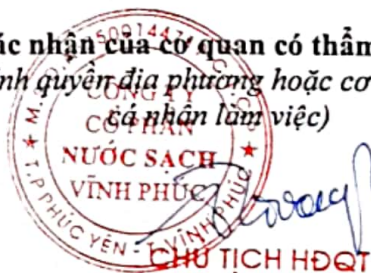 ác nhận của cơ quan có thẩm
ính quyền địa phương hoặc cơ
cá nhân làm việc)
CÔNG TY
CỔ PHẦN
NƯỚC SẠCH
VĨNH PHÚC
T.P PHÚC YÊN - T. VĨNH PHÚC
CHỦ TỊCH HĐQT